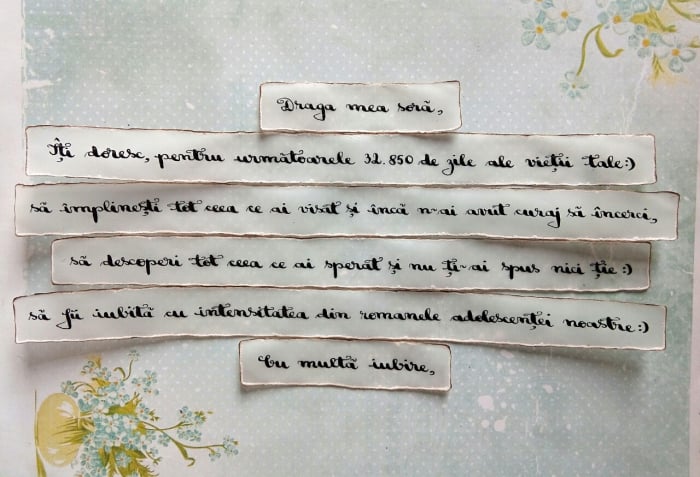 Draga mea soră,
Îți doresc, pentru următoarele 32.850 de zile ale vieții tale:)
să împlinești tot ceea ce ai visat și încă n-ai avut curaj să încerci,
să descoperi tot ceea ce ai sperat și nu ți-ai spus nici ție:)
să fii iubită cu intensitatea din romanele adolescenței noastre:)
Cu multă iubire,